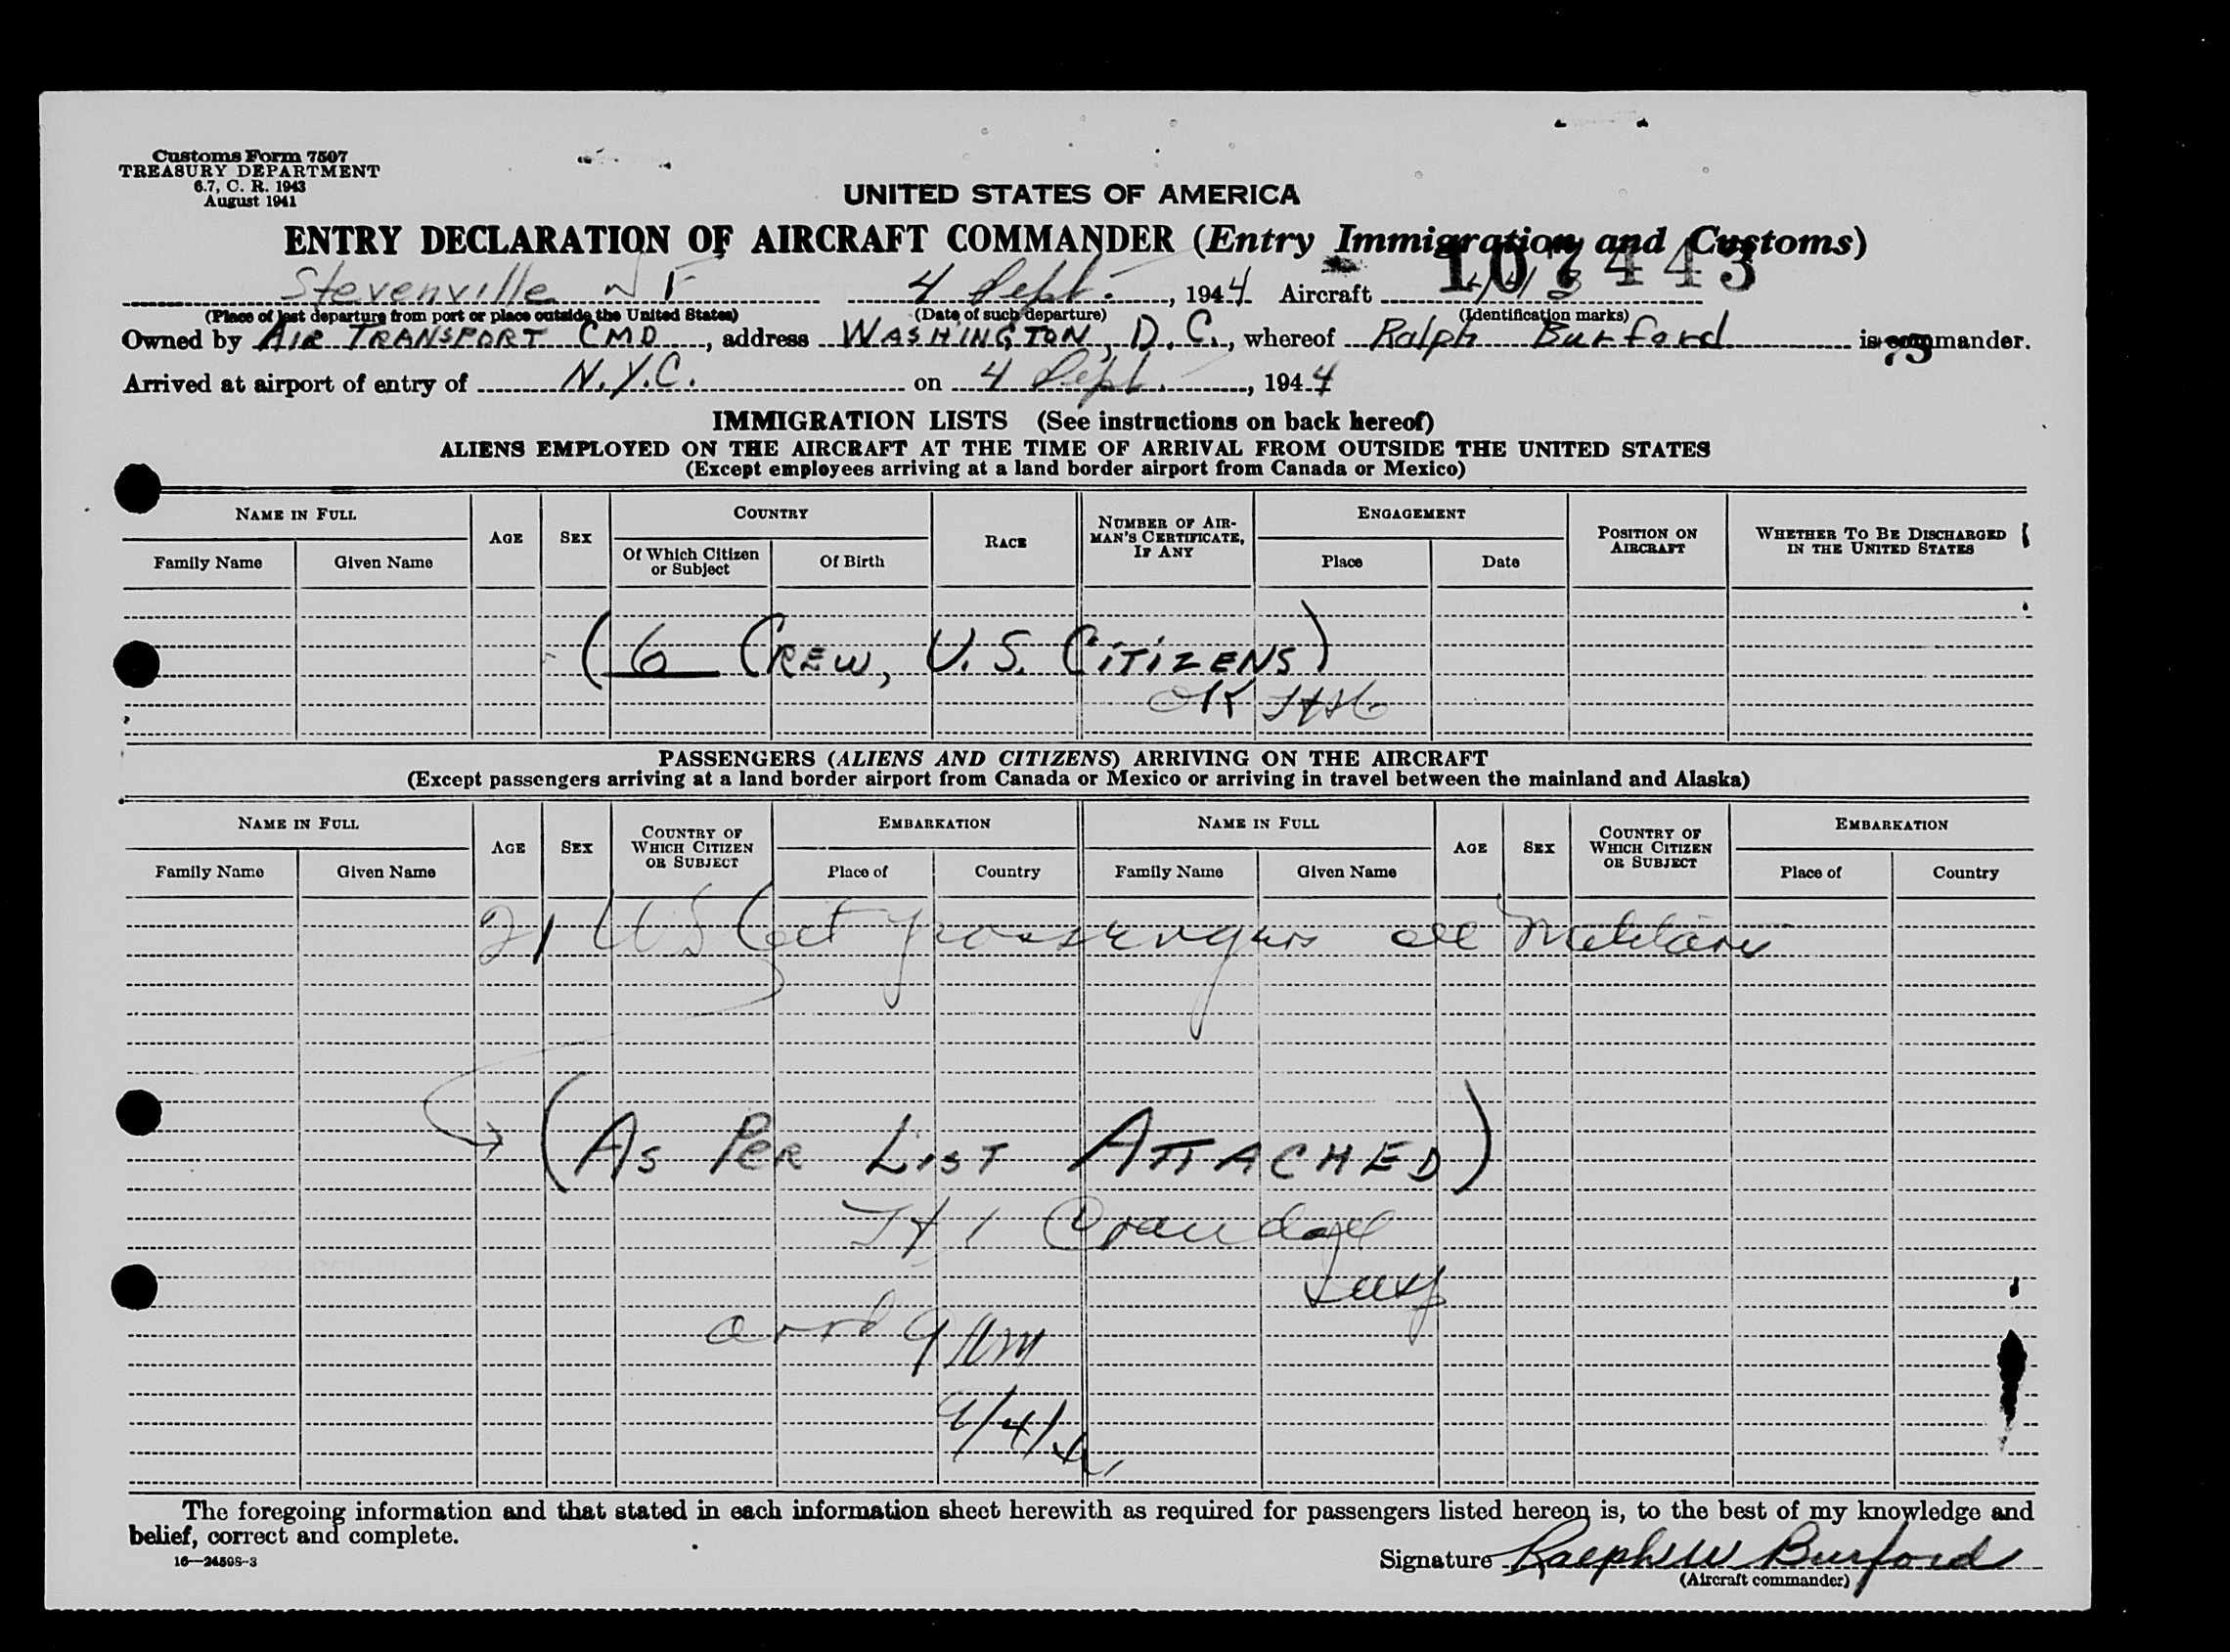 Customs Form 7507
TREASURY DEPARTMENT
6.7, C. R. 1943
August 1941
UNITED STATES OF AMERICA
ENTRY DECLARATION OF AIRCRAFT COMMANDER (Entry Immigration and Customs)
107443
Stevenville N F 4 Sept. , 1944 Aircraft
(Place of last departure from port or place outside the United States) (Date of such departure) (Identification marks)
Owned by AIR TRANSPORT CMD , address WASHINGTON, D.C. , whereof Ralph Burford is commander.
Arrived at airport of entry of N.Y.C. on 4 Sept. , 1944
IMMIGRATION LISTS (See instructions on back hereof)
ALIENS EMPLOYED ON THE AIRCRAFT AT THE TIME OF ARRIVAL FROM OUTSIDE THE UNITED STATES
(Except employees arriving at a land border airport from Canada or Mexico)
NAME IN FULL AGE SEX COUNTRY RACE NUMBER OF AIRMAN'S CERTIFICATE, IF ANY ENGAGEMENT POSITION ON AIRCRAFT WHETHER TO BE DISCHARGED IN THE UNITED STATES
Family Name Given Name Of Which Citizen or Subject Of Birth Place Date
(6 CREW, U.S. CITIZENS)
OK
PASSENGERS (ALIENS AND CITIZENS) ARRIVING ON THE AIRCRAFT
(Except passengers arriving at a land border airport from Canada or Mexico or arriving in travel between the mainland and Alaska)
NAME IN FULL AGE SEX COUNTRY OF WHICH CITIZEN OR SUBJECT EMBARKATION NAME IN FULL AGE SEX COUNTRY OF WHICH CITIZEN OR SUBJECT EMBARKATION
Family Name Given Name Place of Country Family Name Given Name Place of Country
21 US Cit passengers all military
(AS PER LIST ATTACHED)
Crandall
Insp
arrd 9 AM
9/4/44
The foregoing information and that stated in each information sheet herewith as required for passengers listed hereon is, to the best of my knowledge and
belief, correct and complete.
16—24598-3
Signature Ralph W Burford
(Aircraft commander)